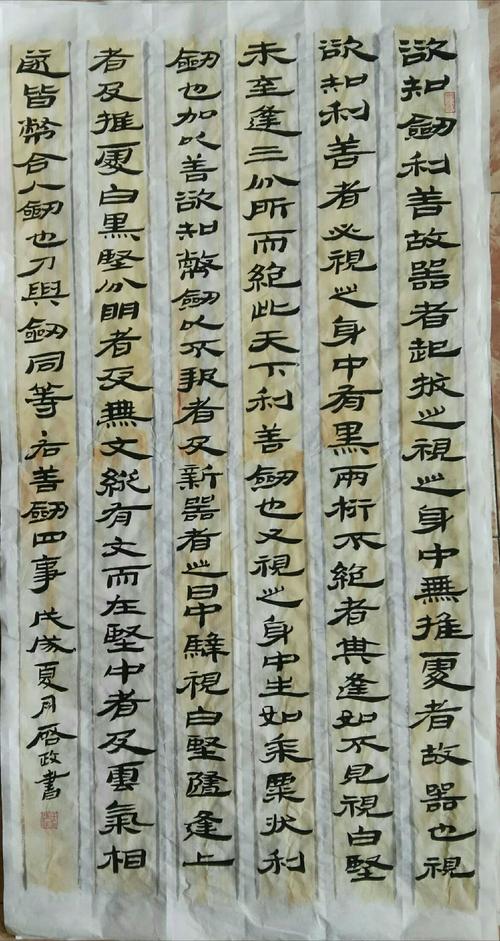 欲知劒利善故器者起拔之視之身中無推處者故器也視
欲知利善者必視之身中有黑兩桁不絕者其逢如不見視白堅
未至逢三分所而絕此天下利善劒也又視之身中生如黍粟狀利
劒也加以善欲知幣劒以不報者及新器者之日中騂視白堅隨逢上
者及推處白黑堅分明者及無文縱有文而在堅中者及雲氣相
遂皆幣合人劒也刀與劒同等·右善劒四事 戊戌夏月啓政書